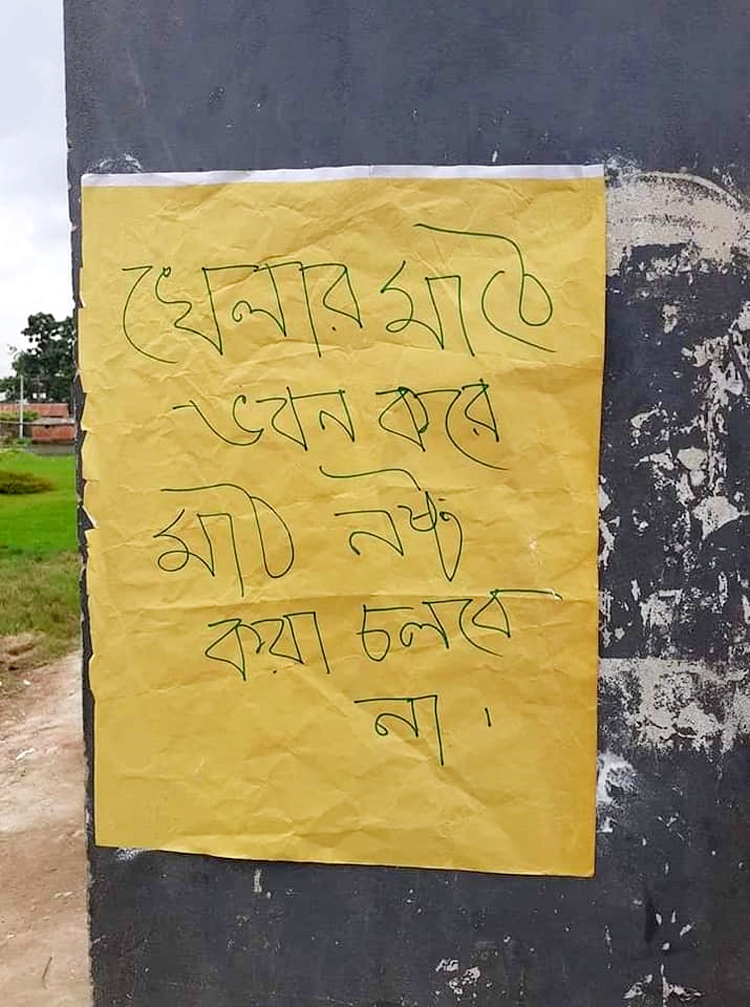 খেলার মাঠে
ভবন করে
মাঠ নষ্ট
করা চলবে
না।